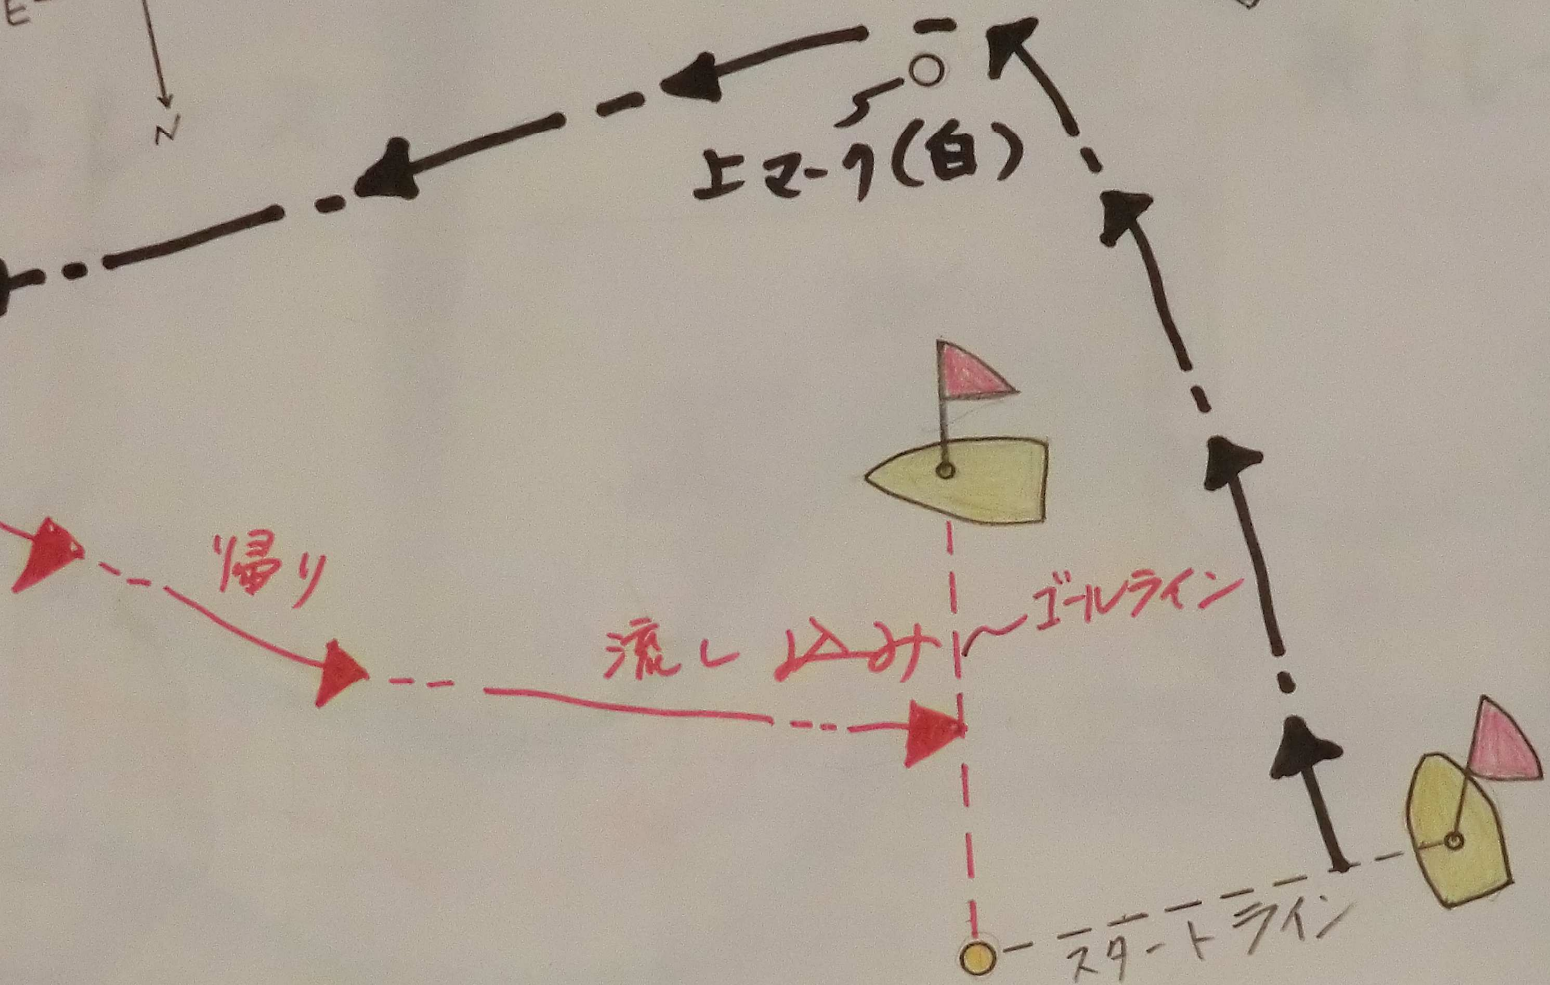 E
N
上マーク(白)
帰り
流し込み
ゴールライン
スタートライン